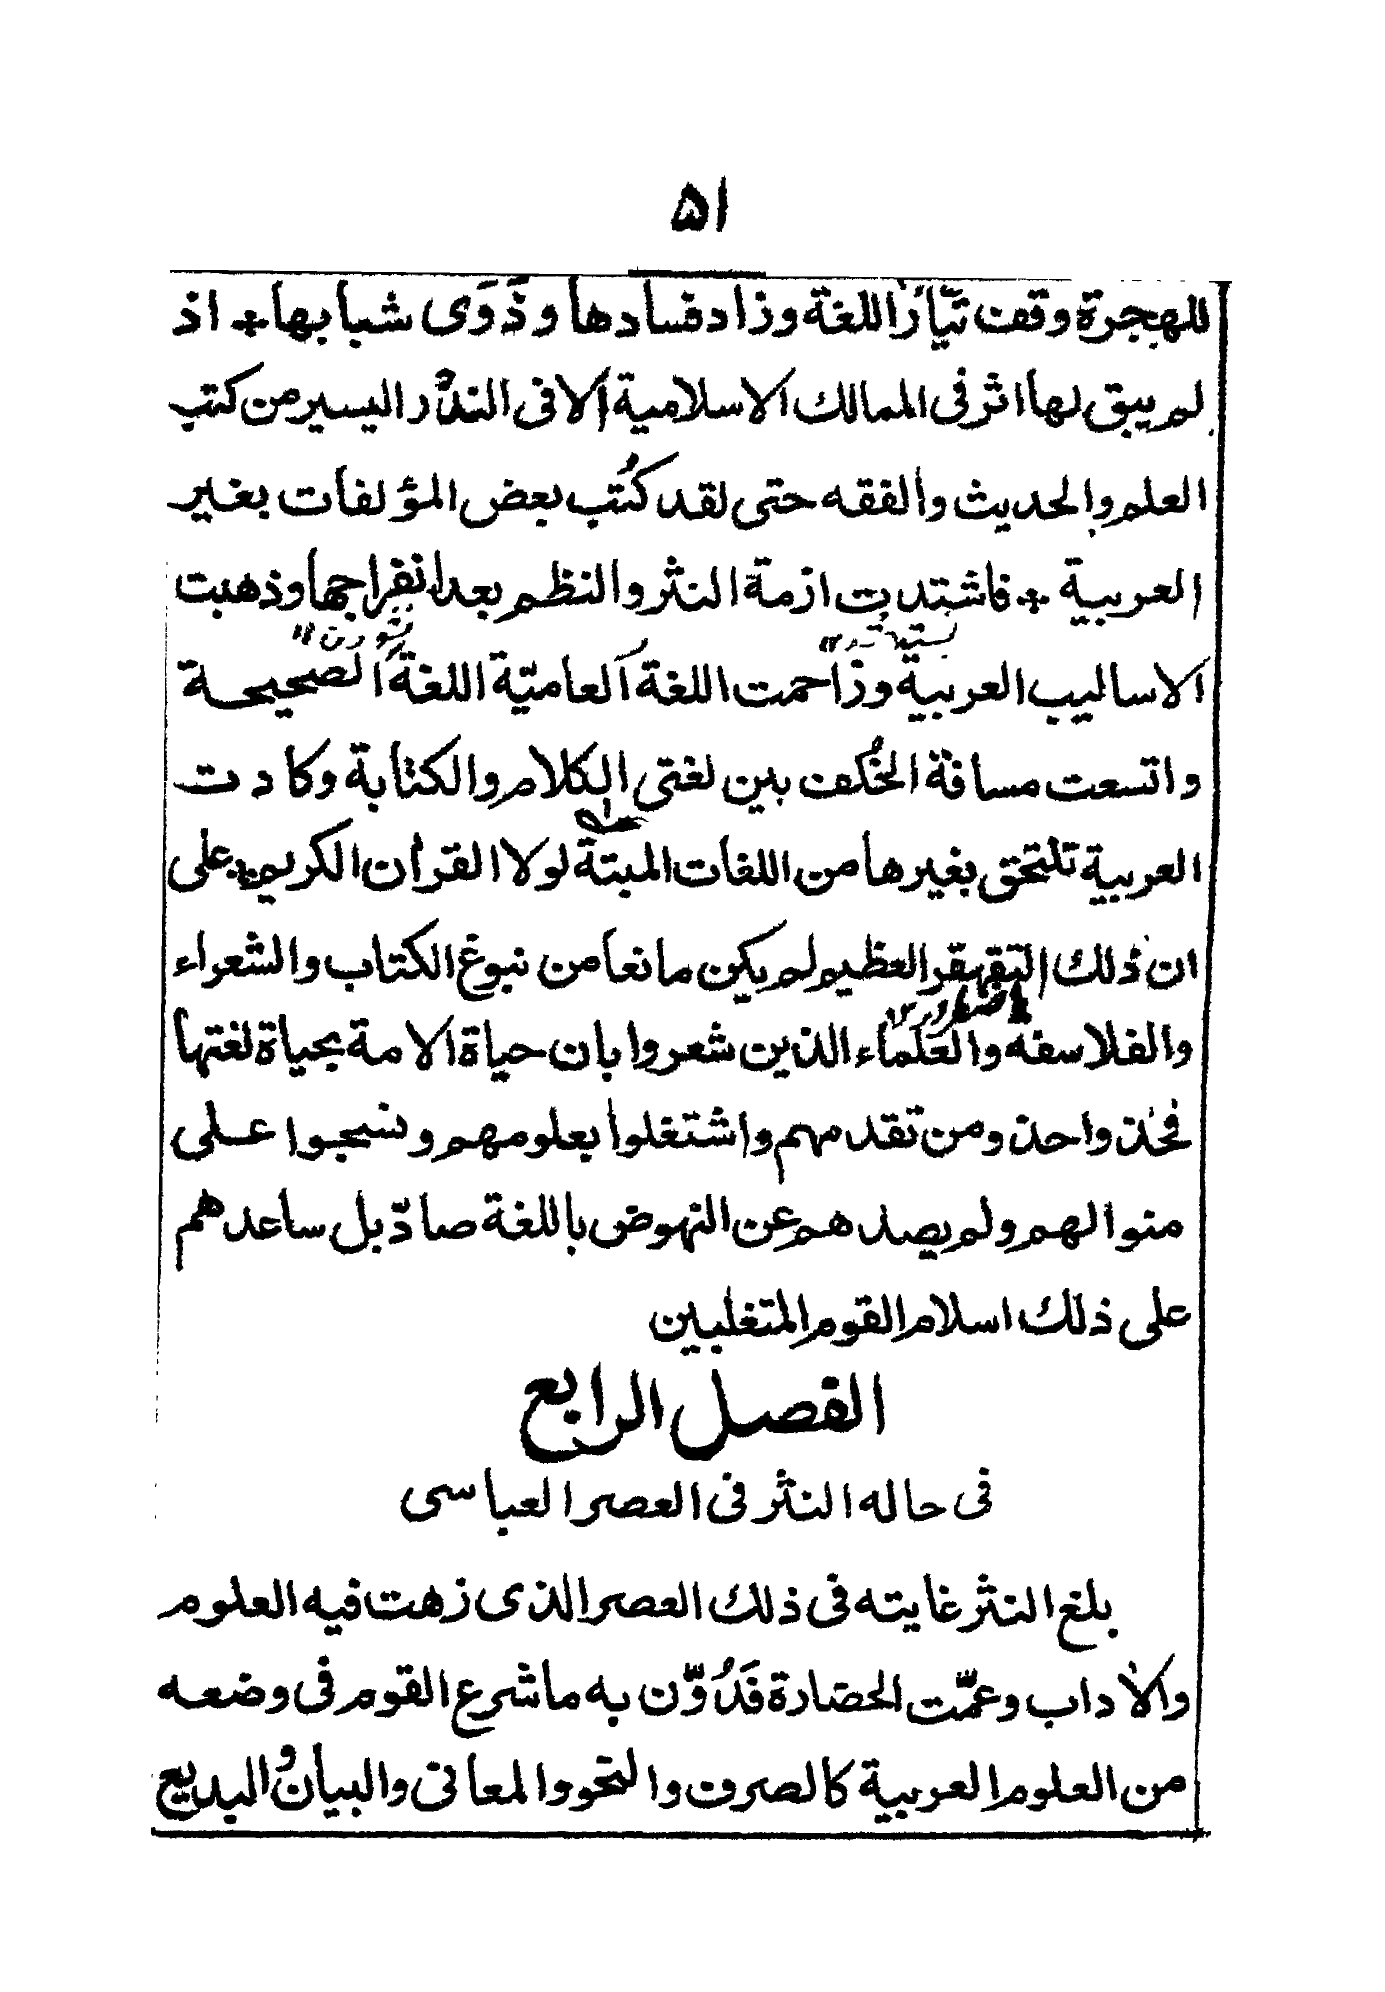 ۵۱
للهجرة وقفت تيّارُ اللغة وزاد فسادها وذَوَى شبابها * اذ
لم يبق لها اثر فى الممالك الاسلامية اَلا فى النذر اليسير من كتب
العلم والحديث والفقه حتى لقد كُتب بعض المؤلفات بغير
العربية * فاشتدت ازمة النثر والنظم بعد انفراجها وذهبت
الاساليب العربية وزاحمت اللغة اَلعاميّة اللغةَ الصحيحة
واتسعت مسافة الخُلف بين لغتى الكلام والكتابة وكادت
العربية تلتحق بغيرها من اللغات الميتة لولا القرآن الكريم * على
ان ذلك التقهقر العظيم لم يكن مانعا من نبوغ الكتاب والشعراء
والفلاسفه والعلماء الذين شعروا بان حياة الامة بحياة لغتها
فحذوا حذو من تقدمهم واشتغلوا بعلومهم ونسجوا على
منوالهم ولم يصدهم عن النهوض باللغة صادّ بل ساعدهم
على ذلك اسلام القوم المتغلبين
الفصل الرابع
فى حاله النثر فى العصر العباسى
بلغ النثر غايته فى ذلك العصر الذى زهت فيه العلوم
والاداب وعمّت الحضارة فَدُوّن به ما شرع القوم فى وضعه
من العلوم العربية كالصرف والنحو والمعانى والبيان والبديع